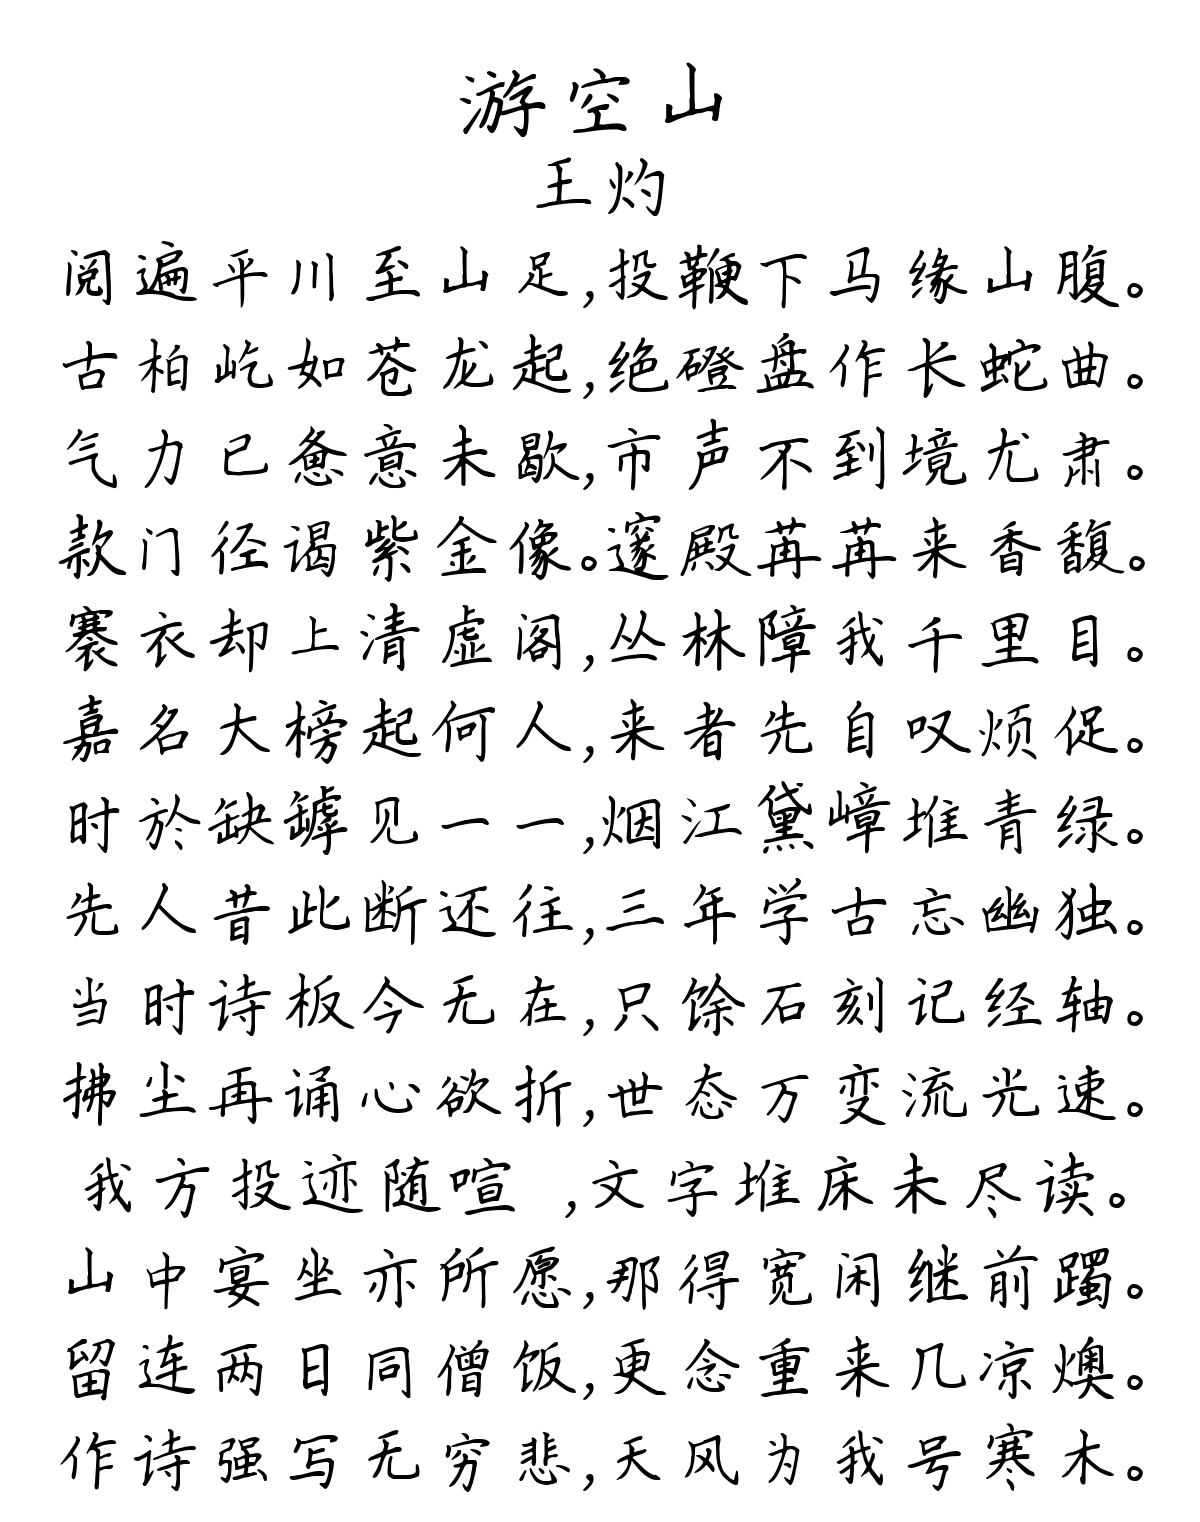 游空山
王灼
阅遍平川至山足,投鞭下马缘山腹。
古柏屹如苍龙起,绝磴盘作长蛇曲。
气力已惫意未歇,市声不到境尤肃。
款门径谒紫金像。邃殿苒苒来香馥。
褰衣却上清虚阁,丛林障我千里目。
嘉名大榜起何人,来者先自叹烦促。
时於缺罅见一一,烟江黛嶂堆青绿。
先人昔此断还往,三年学古忘幽独。
当时诗板今无在,只馀石刻记经轴。
拂尘再诵心欲折,世态万变流光速。
我方投迹随喧 ,文字堆床未尽读。
山中宴坐亦所愿,那得宽闲继前躅。
留连两日同僧饭,更念重来几凉燠。
作诗强写无穷悲,天风为我号寒木。